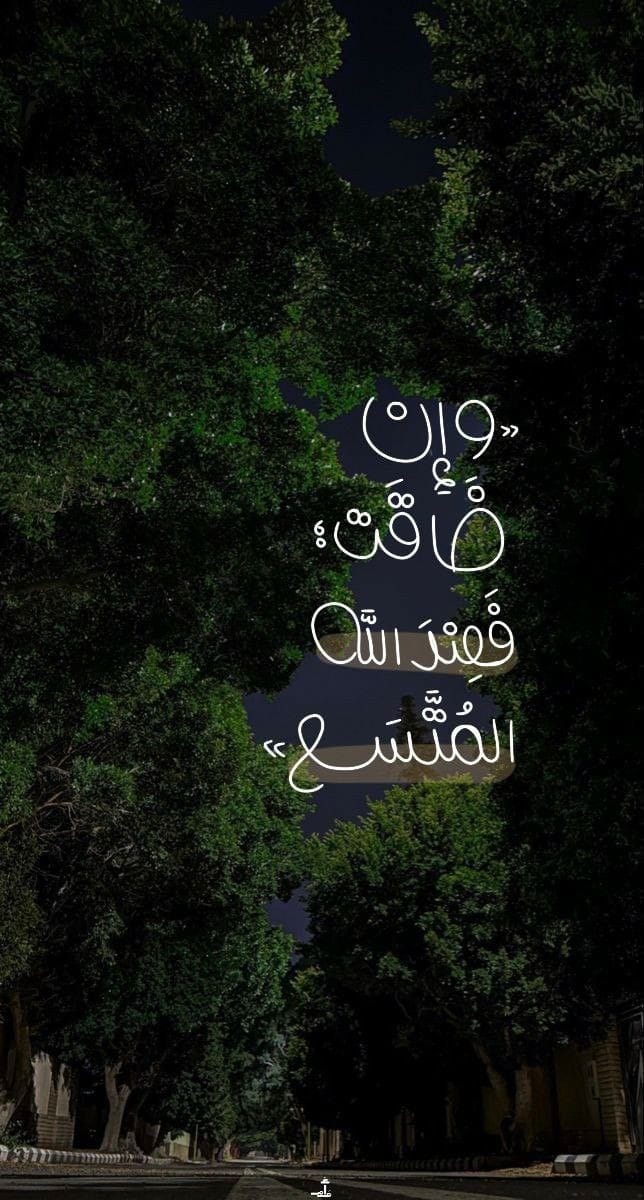 «وإِنْ
ضَاقَتْ
فَعِنْدَ اللَّه
المُتَّسَع»